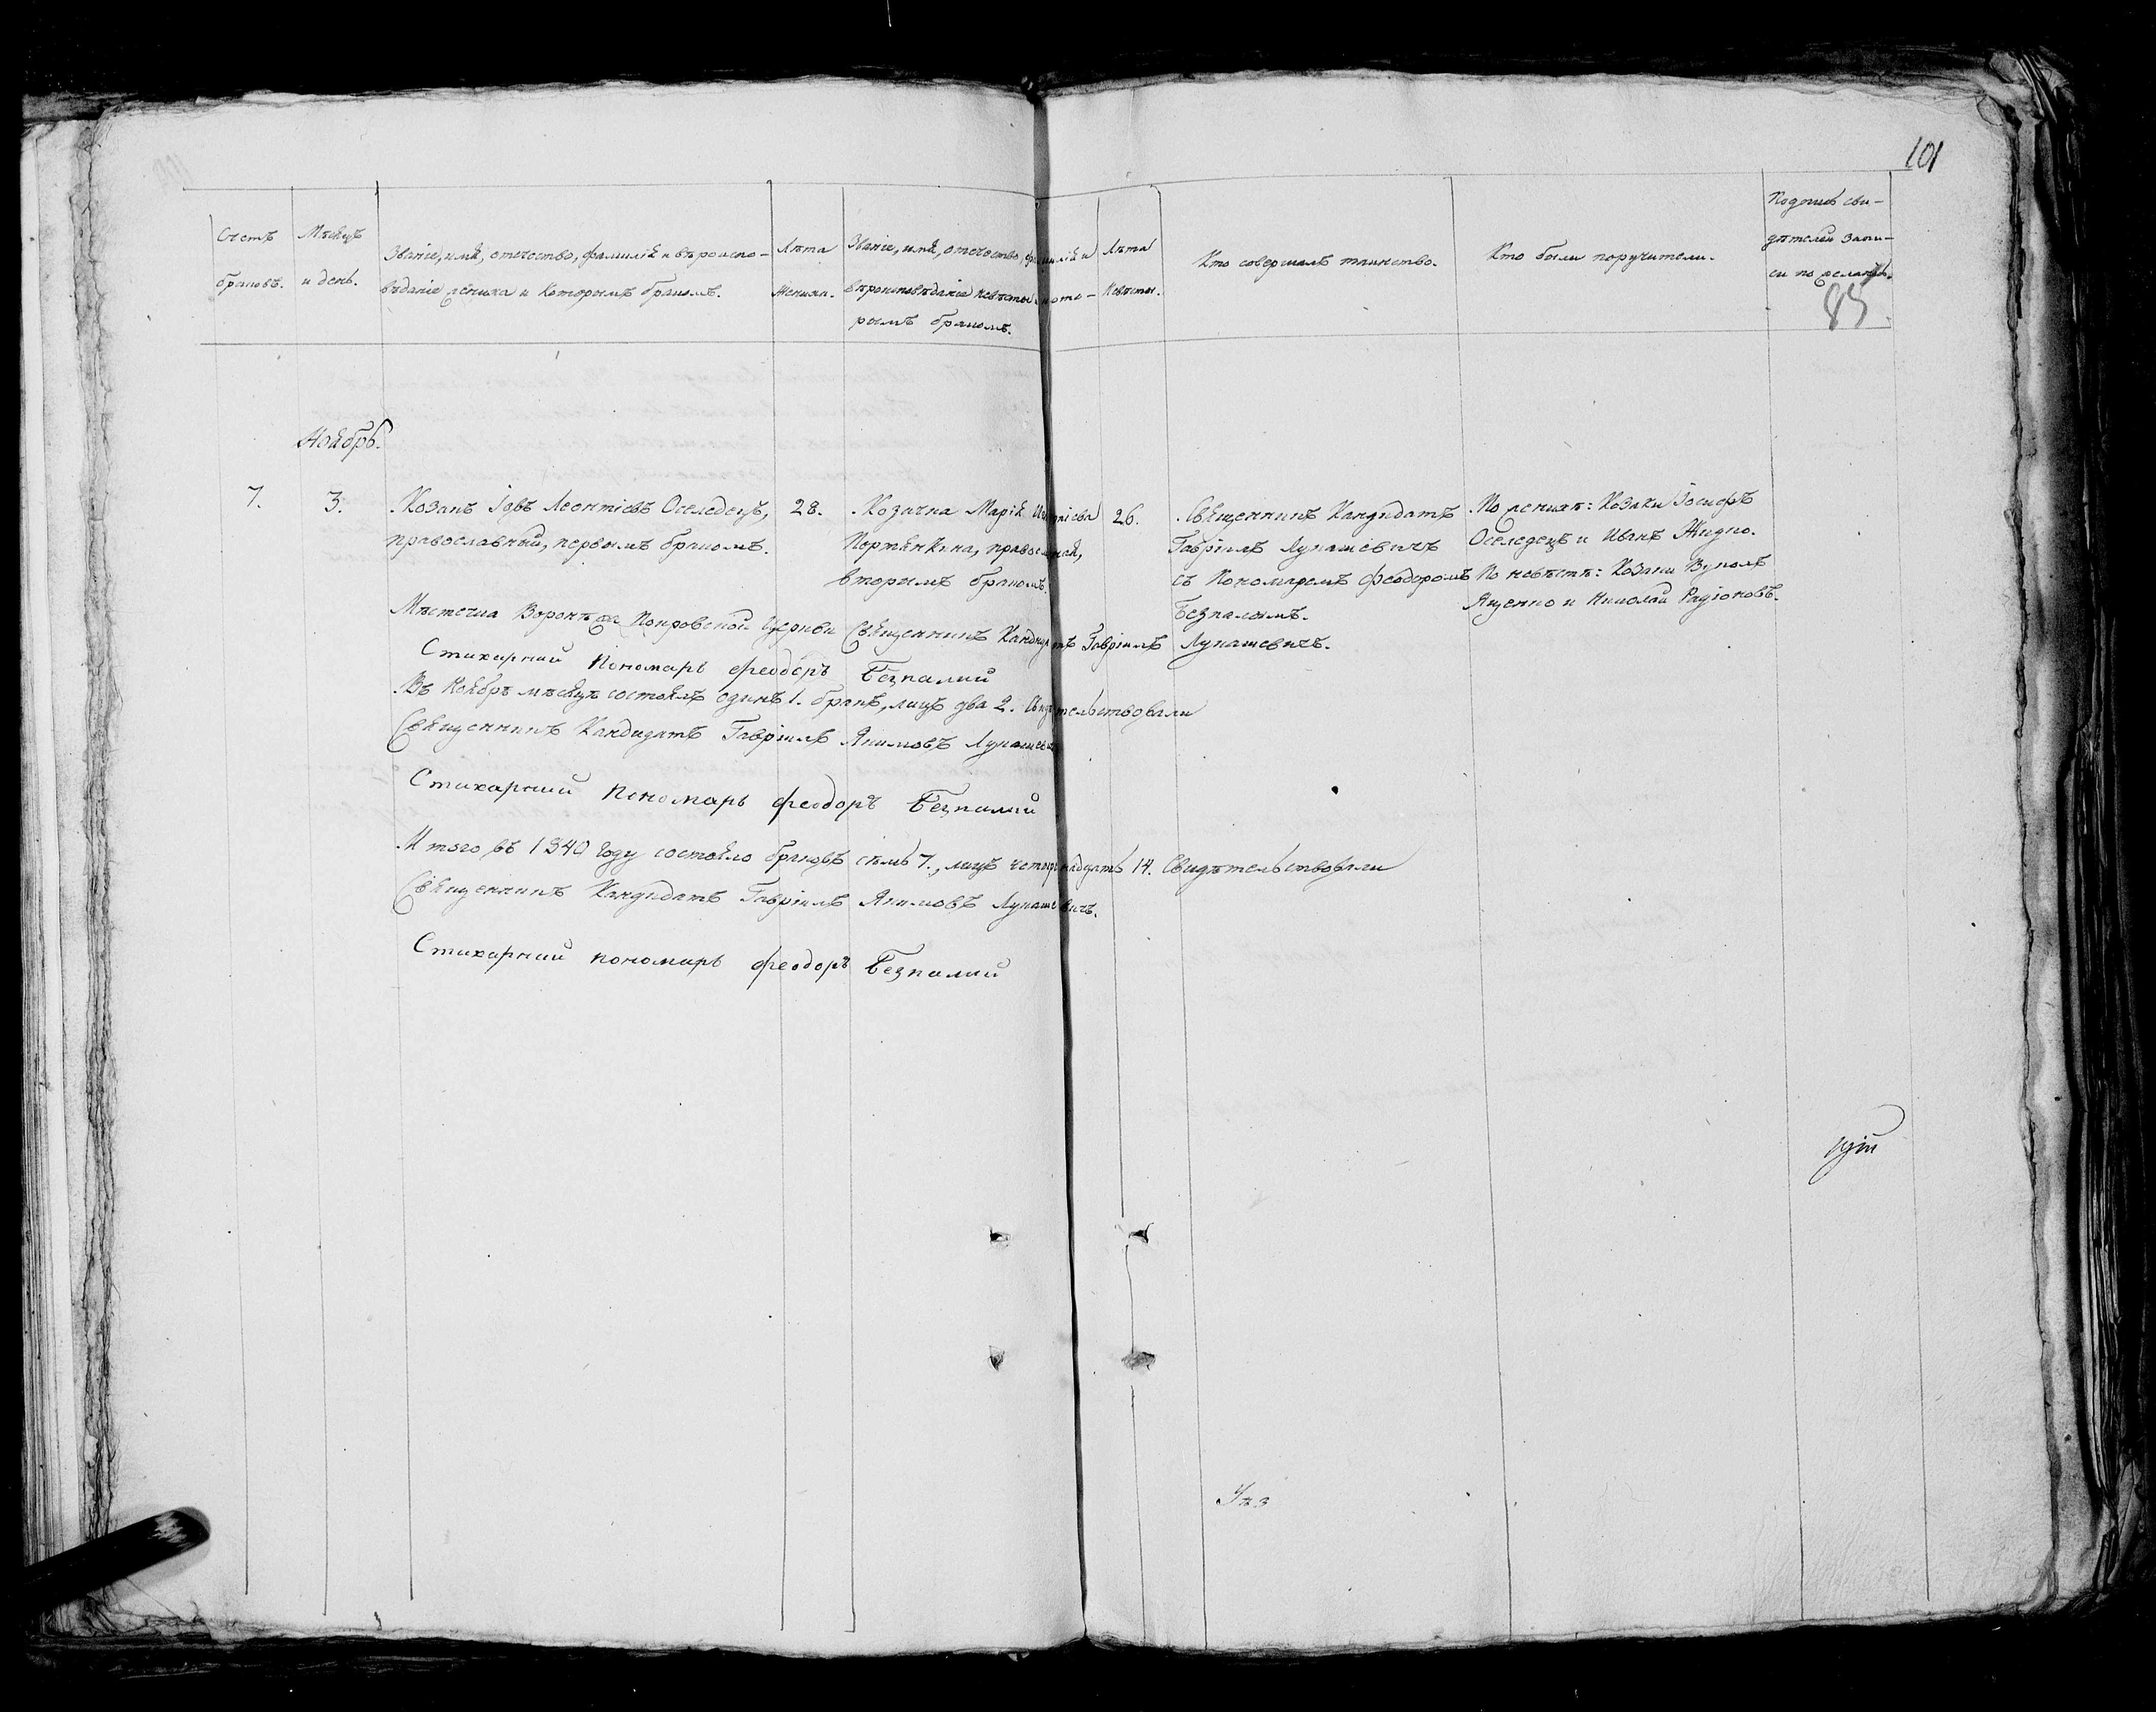 101
Счетъ браковъ.
Мѣсяцъ и день.
Званіе, имя, отечество, фамилія и вѣроиспо-
вѣданіе жениха и которымъ бракомъ.
Лѣта жениха.
Званіе, имя, отечество, фамилія и
вѣроисповѣданіе невѣсты и кото-
рымъ бракомъ.
Лѣта невѣсты.
Кто совершалъ таинство.
Кто были поручители.
Подпись сви-
дѣтелей запи-
си по желанію.
85
Ноябрь.
7.
3.
Козакъ Іовъ Леонтіевъ Оселедецъ,
православный, первымъ бракомъ.
28.
Козачка Марія
Портянкина, православная,
вторымъ бракомъ.
26.
Священникъ Кандидатъ
Гавріилъ Лукашевичъ
съ Пономаремъ Феодоромъ
Безпалымъ.
По женихѣ: Козаки Іосифъ
Оселедецъ и Иванъ Жидко.
По невѣстѣ: Козаки Вуколъ
Яценко и Николай Радіоновъ.
Мѣстечка Воронѣжа Покровской Церкви Священникъ Кандидатъ Гавріилъ Лукашевичъ.
Стихарний Пономарь Феодоръ Безпалий
Въ Ноябрѣ мѣсяцѣ состоялъ одинъ 1. бракъ, лицъ два 2. Свидѣтельствовали
Священникъ Кандидатъ Гавріилъ Якимовъ Лукашевичъ
Стихарний Пономарь Феодоръ Безпалий
Итого въ 1840 году состояло браковъ семь 7., лицъ четырнадцать 14. Свидѣтельствовали
Священникъ Кандидатъ Гавріилъ Якимовъ Лукашевичъ.
Стихарний пономарь Феодоръ Безпалий